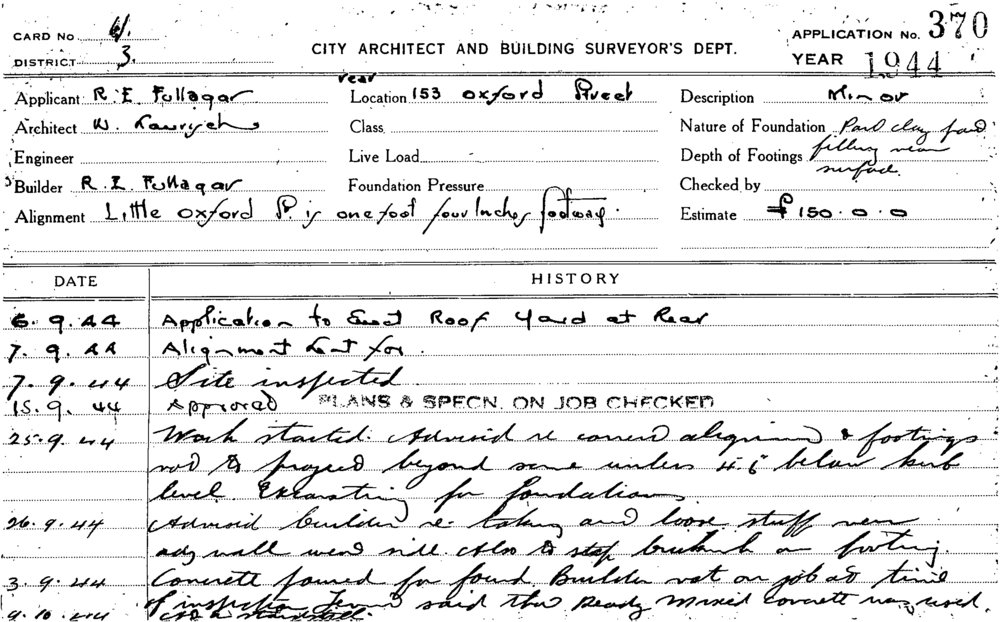 CARD No. 61
DISTRICT 3
CITY ARCHITECT AND BUILDING SURVEYOR'S DEPT.
APPLICATION No. 370
YEAR 1944
Applicant R. E. Fullagar
rear
Location 153 Oxford Street
Description Minor
Architect W.
Class
Nature of Foundation Part clay part
Engineer
Live Load
Depth of Footings filling near
surface
Builder R. E. Fullagar
Foundation Pressure
Checked by
Alignment Little Oxford St is one foot four Inches footway.
Estimate £150.0.0
DATE HISTORY
6.9.44 Application to Erect Roof Yard at Rear
7.9.44 Alignment Sent for.
7.9.44 Site inspected
15.9.44 Approved PLANS & SPECN. ON JOB CHECKED
25.9.44 Work started. Advised re correct alignm & footings
not to project beyond same unless 4'.6" below kerb
level. Excavating for foundations
26.9.44 Advised builder re. taking out loose stuff near
adj wall west side. Also to step brickwork on footing.
3.9.44 Concrete poured for found. Builder not on job at time
of inspection. said that Ready Mixed concrete was used.
9.10.44